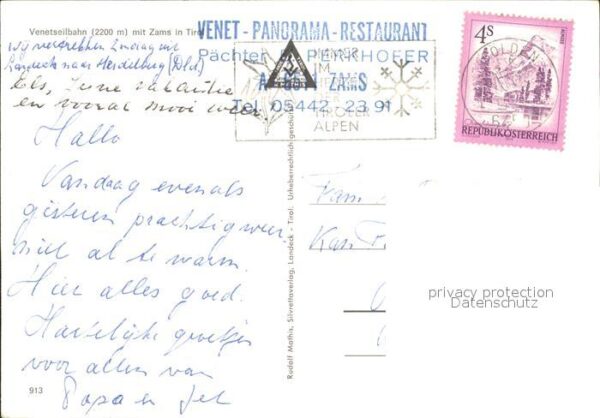 Venetseilbahn (2200 m) mit Zams in Tirol
VENET - PANORAMA - RESTAURANT
Pächter PERKHOFER
A- ZAMS
Tel. 05442 - 23 91
IMMER
IM
TIROLER
ALPEN
4s
REPUBLIK ÖSTERREICH
wij vertrekken Zondag uit
Landeck naar Heidelberg (Dld)
Els, fijne vakantie
en vooral mooi weer
Hallo
Vandaag evenals
gisteren prachtig weer
niet al te warm.
Hier alles goed.
Hartelijke groetjes
voor allen van
Papa en Jet
Fam
913
Rudolf Mathis, Silvrettaverlag, Landeck - Tirol. Urheberrechtlich geschützt
privacy protection
Datenschutz